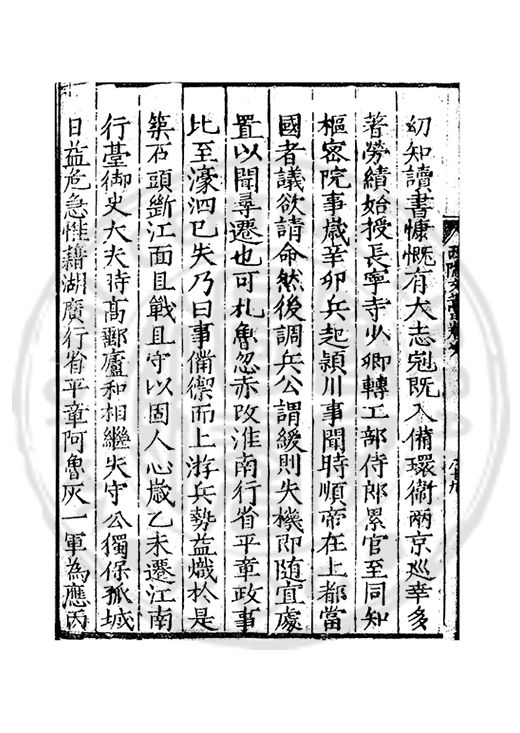 幼知讀書慷慨有大志尅既入備環衞兩京巡幸多
著勞績始授長寧寺少卿轉工部侍郎累官至同知
樞密院事嵗辛卯兵起潁川事聞時順帝在上都當
國者議欲請命然後調兵公謂緩則失機即隨宜處
置以聞尋遷也可札魯忽赤改淮南行省平章政事
比至濠泗已失乃曰事備禦而上游兵勢益熾於是
築石頭斷江面且戰且守以固人心嵗乙未遷江南
行臺御史大夫時髙郵廬和相繼失守公獨保孤城
日益危急惟藉湖廣行省平章阿魯灰一軍為應丙